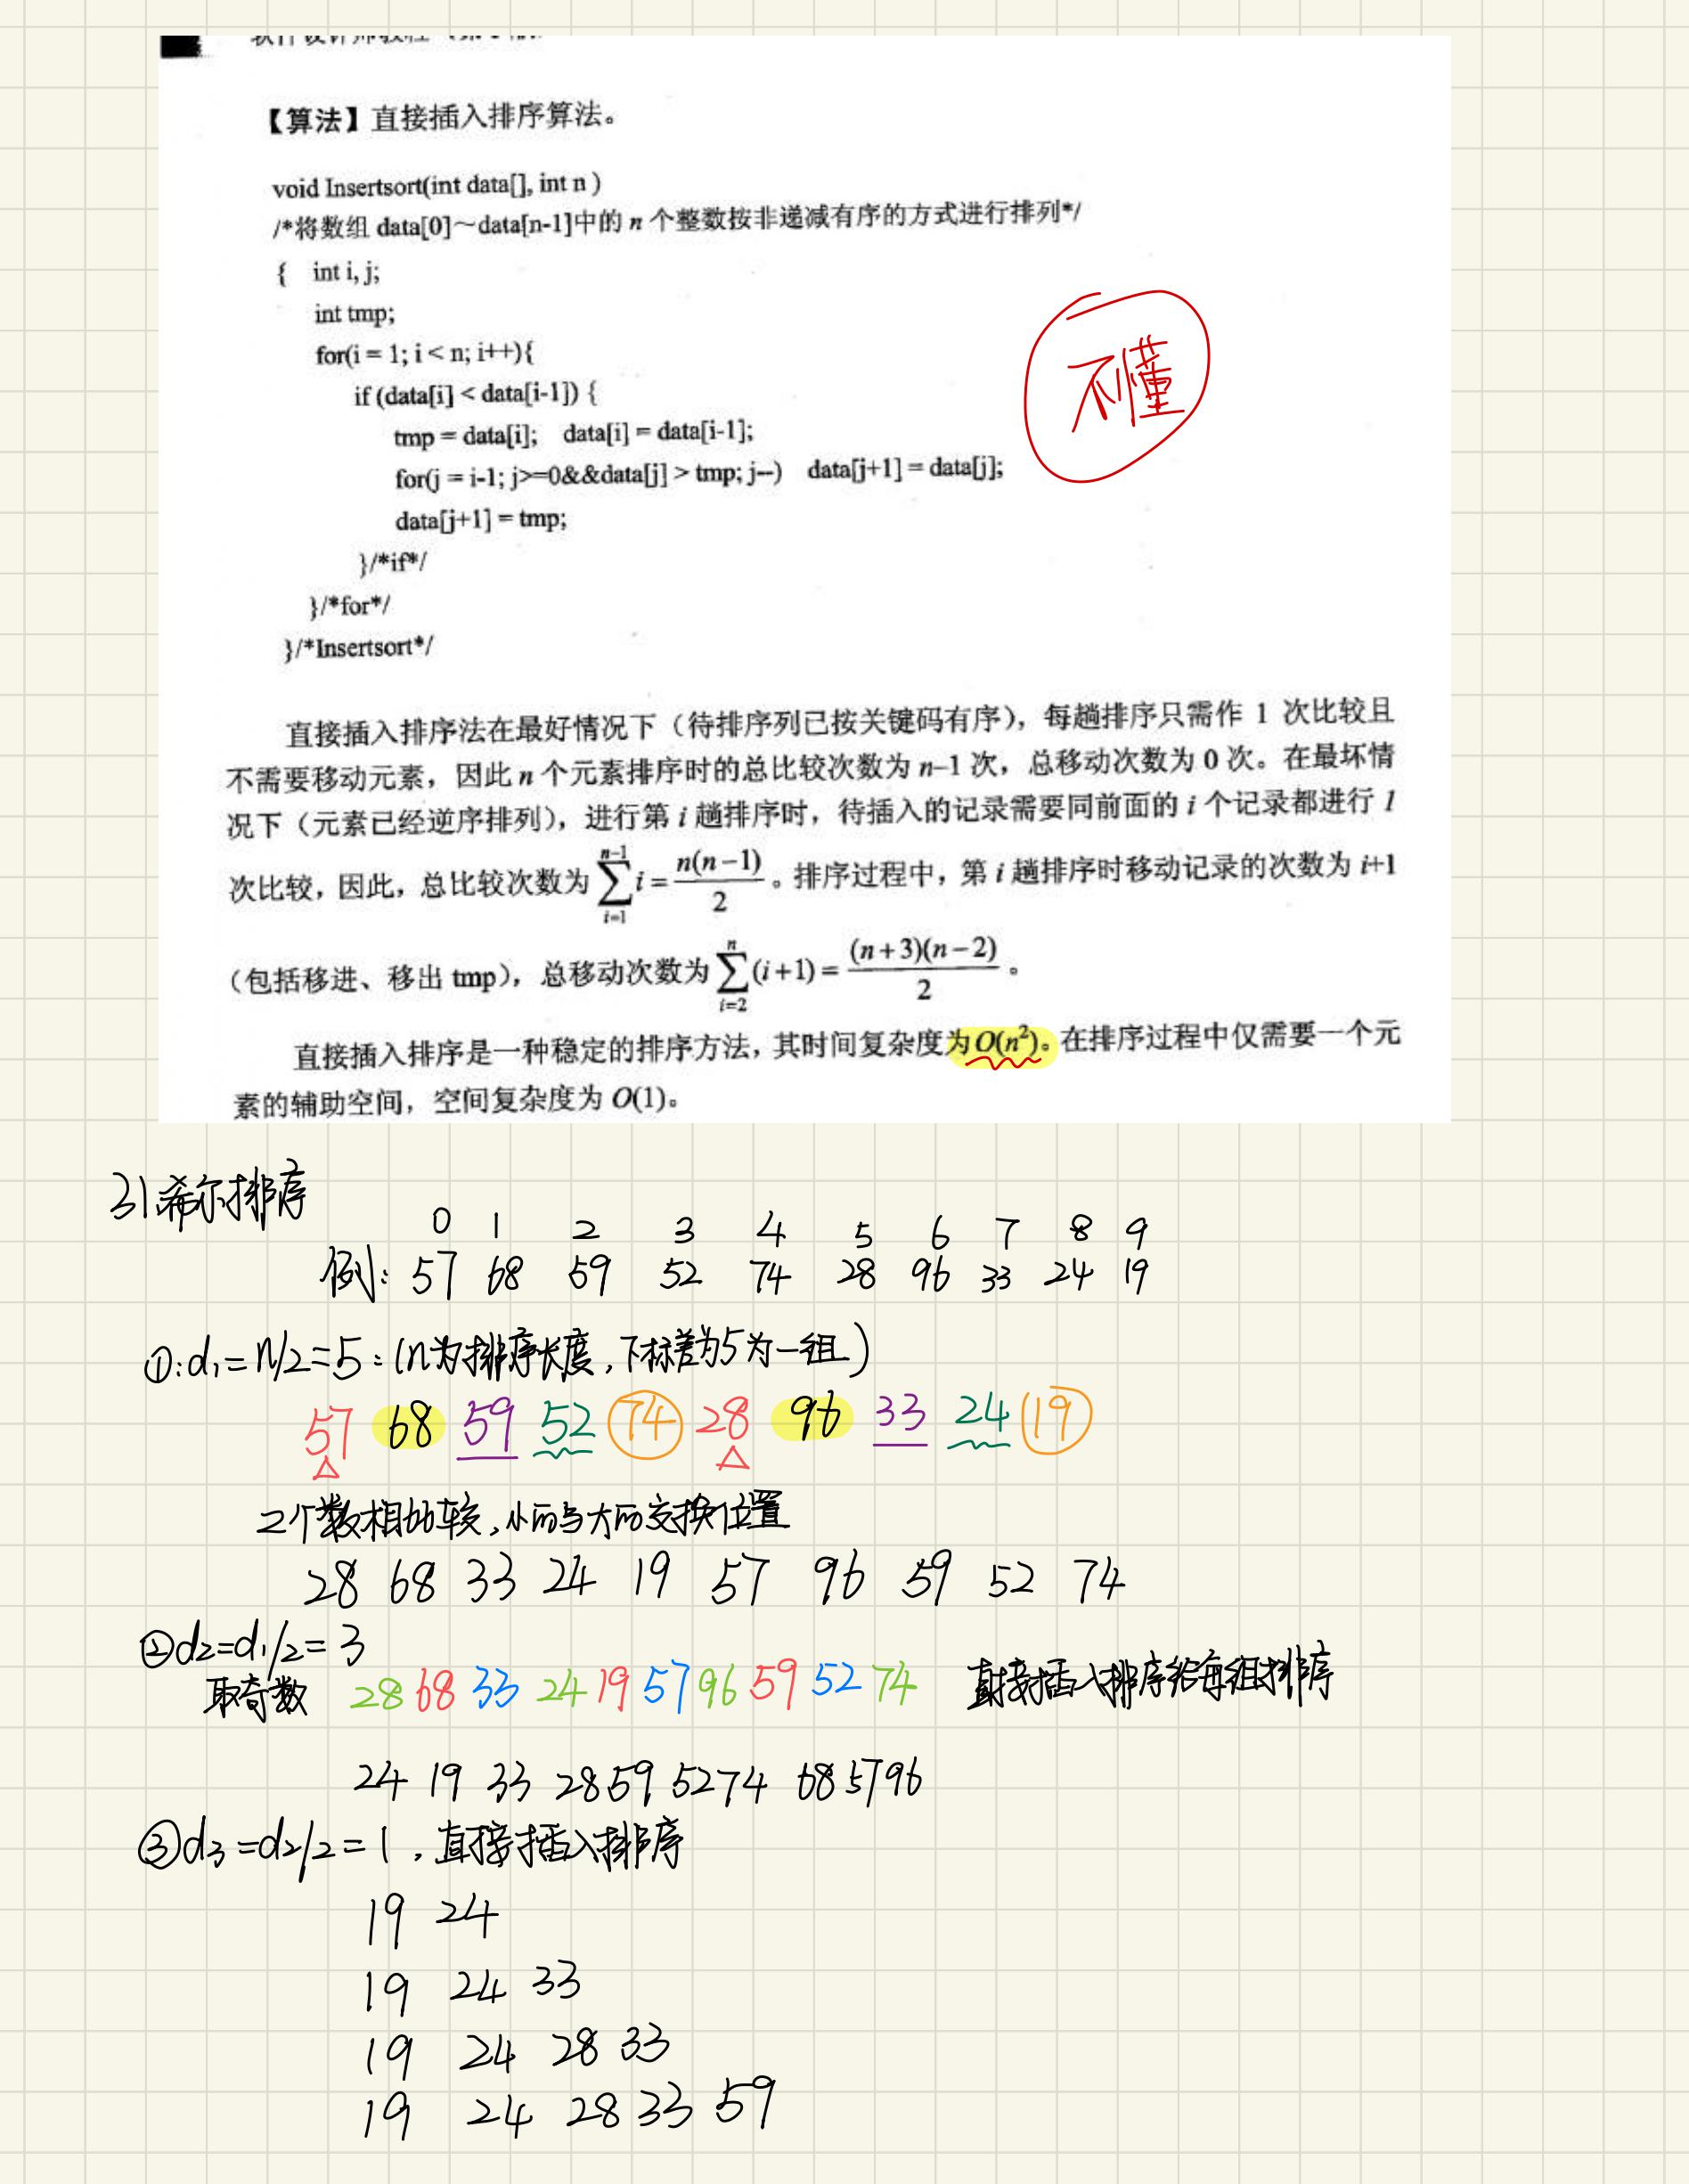 【算法】直接插入排序算法。
void Insertsort(int data[], int n )
/*将数组 data[0]～data[n-1]中的 n 个整数按非递减有序的方式进行排列*/
{ int i, j;
int tmp;
for(i = 1; i < n; i++){
if (data[i] < data[i-1]) {
tmp = data[i]; data[i] = data[i-1];
for(j = i-1; j>=0&&data[j] > tmp; j--) data[j+1] = data[j];
data[j+1] = tmp;
}/*if*/
}/*for*/
}/*Insertsort*/
不懂
直接插入排序法在最好情况下（待排序列已按关键码有序），每趟排序只需作 1 次比较且
不需要移动元素，因此 n 个元素排序时的总比较次数为 n–1 次，总移动次数为 0 次。在最坏情
况下（元素已经逆序排列），进行第 i 趟排序时，待插入的记录需要同前面的 i 个记录都进行 1
次比较，因此，总比较次数为 \sum_{i=1}^{n-1} i = \frac{n(n-1)}{2}。排序过程中，第 i 趟排序时移动记录的次数为 i+1
（包括移进、移出 tmp），总移动次数为 \sum_{i=2}^{n} (i+1) = \frac{(n+3)(n-2)}{2}。
直接插入排序是一种稳定的排序方法，其时间复杂度为O(n²)。在排序过程中仅需要一个元
素的辅助空间，空间复杂度为 O(1)。
3).希尔排序
0 1 2 3 4 5 6 7 8 9
例: 57 68 59 52 74 28 96 33 24 19
①:d₁=n/2=5:(n为排序长度,下标差为5为一组)
57 68 59 52 74 28 96 33 24 19
2个数相比较,小的与大的交换位置
28 68 33 24 19 57 96 59 52 74
②d₂=d₁/2=3
取奇数 28 68 33 24 19 57 96 59 52 74 直接插入排序给每组排序
24 19 33 28 59 52 74 68 57 96
③d₃=d₂/2=1,直接插入排序
19 24
19 24 33
19 24 28 33
19 24 28 33 59